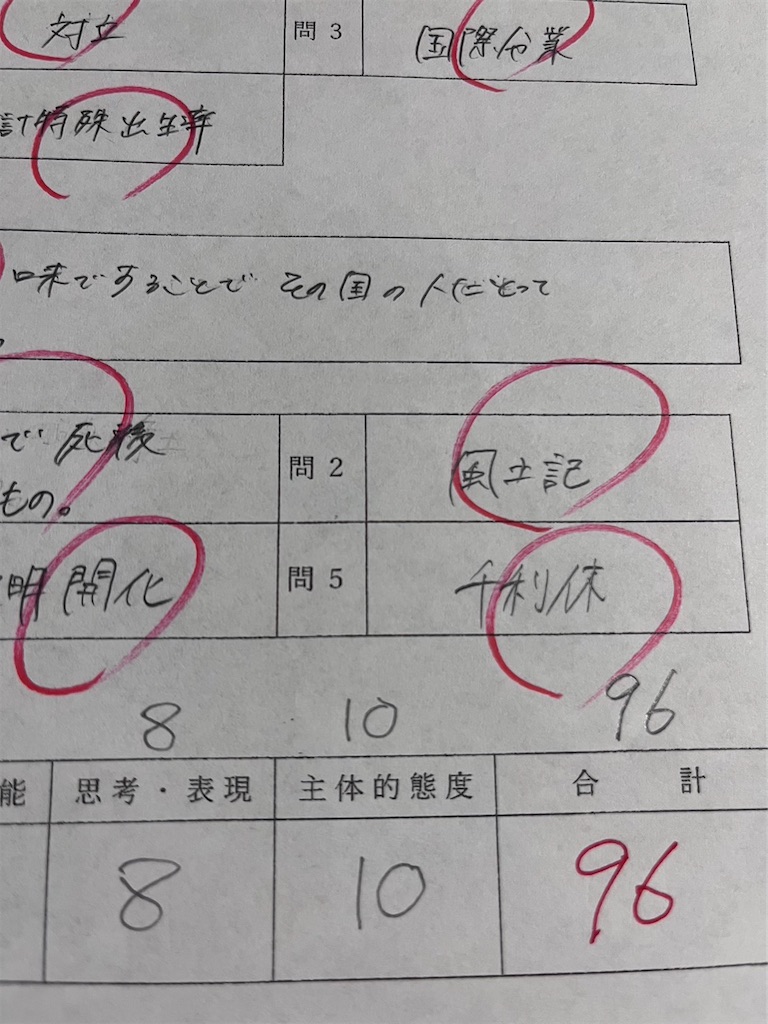 対立 問3 国際分業
計特殊出生率
口味ですることで その国の人だとって
。
で 死後
もの。
問2 風土記
明開化 問5 千利休
8 10 96
能 思考・表現 主体的態度 合計
8 10 96